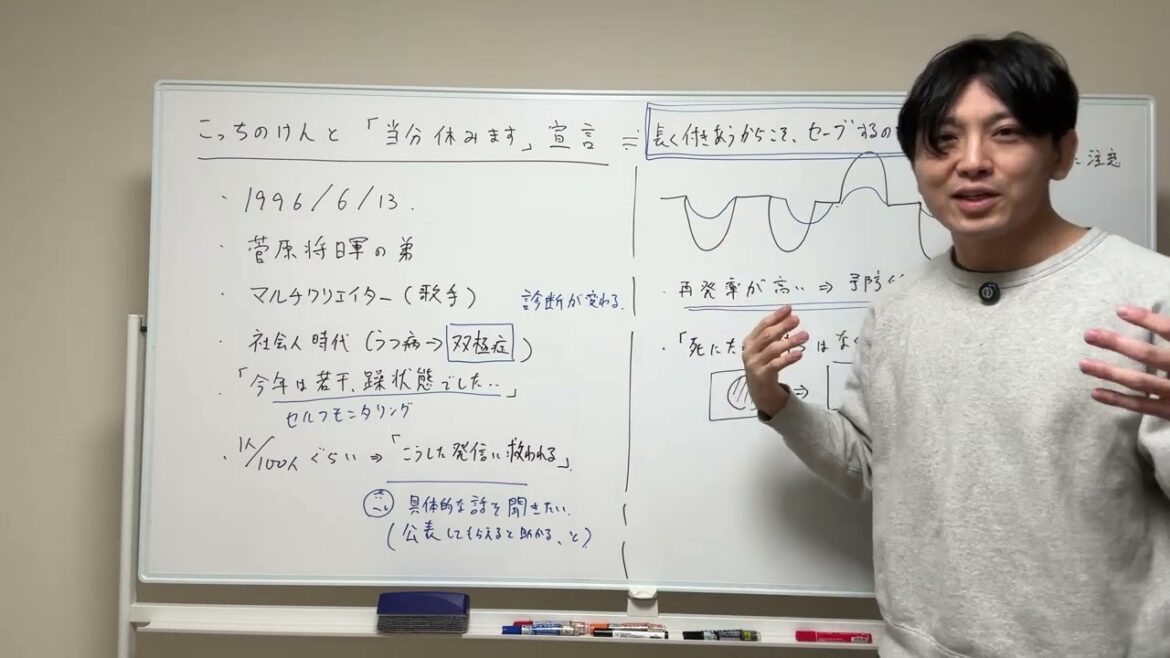 こっちのけんと「当分休みます」宣言
・1996/6/13.
・菅原将暉の弟
・マルチクリエイター(歌手)
・社会人時代(うつ病→双極症)
診断が変わる.
・「今年は若干、躁状態でした..」
セルフモニタリング
・1人/100人ぐらい⇒「こうした発信に救われる」
具体的な話を聞きたい.
(公表してもらえると助かる、と)
長く付きあうからこそ、セーブするの
注意
・再発率が高い⇒予防
・「死にた はなく